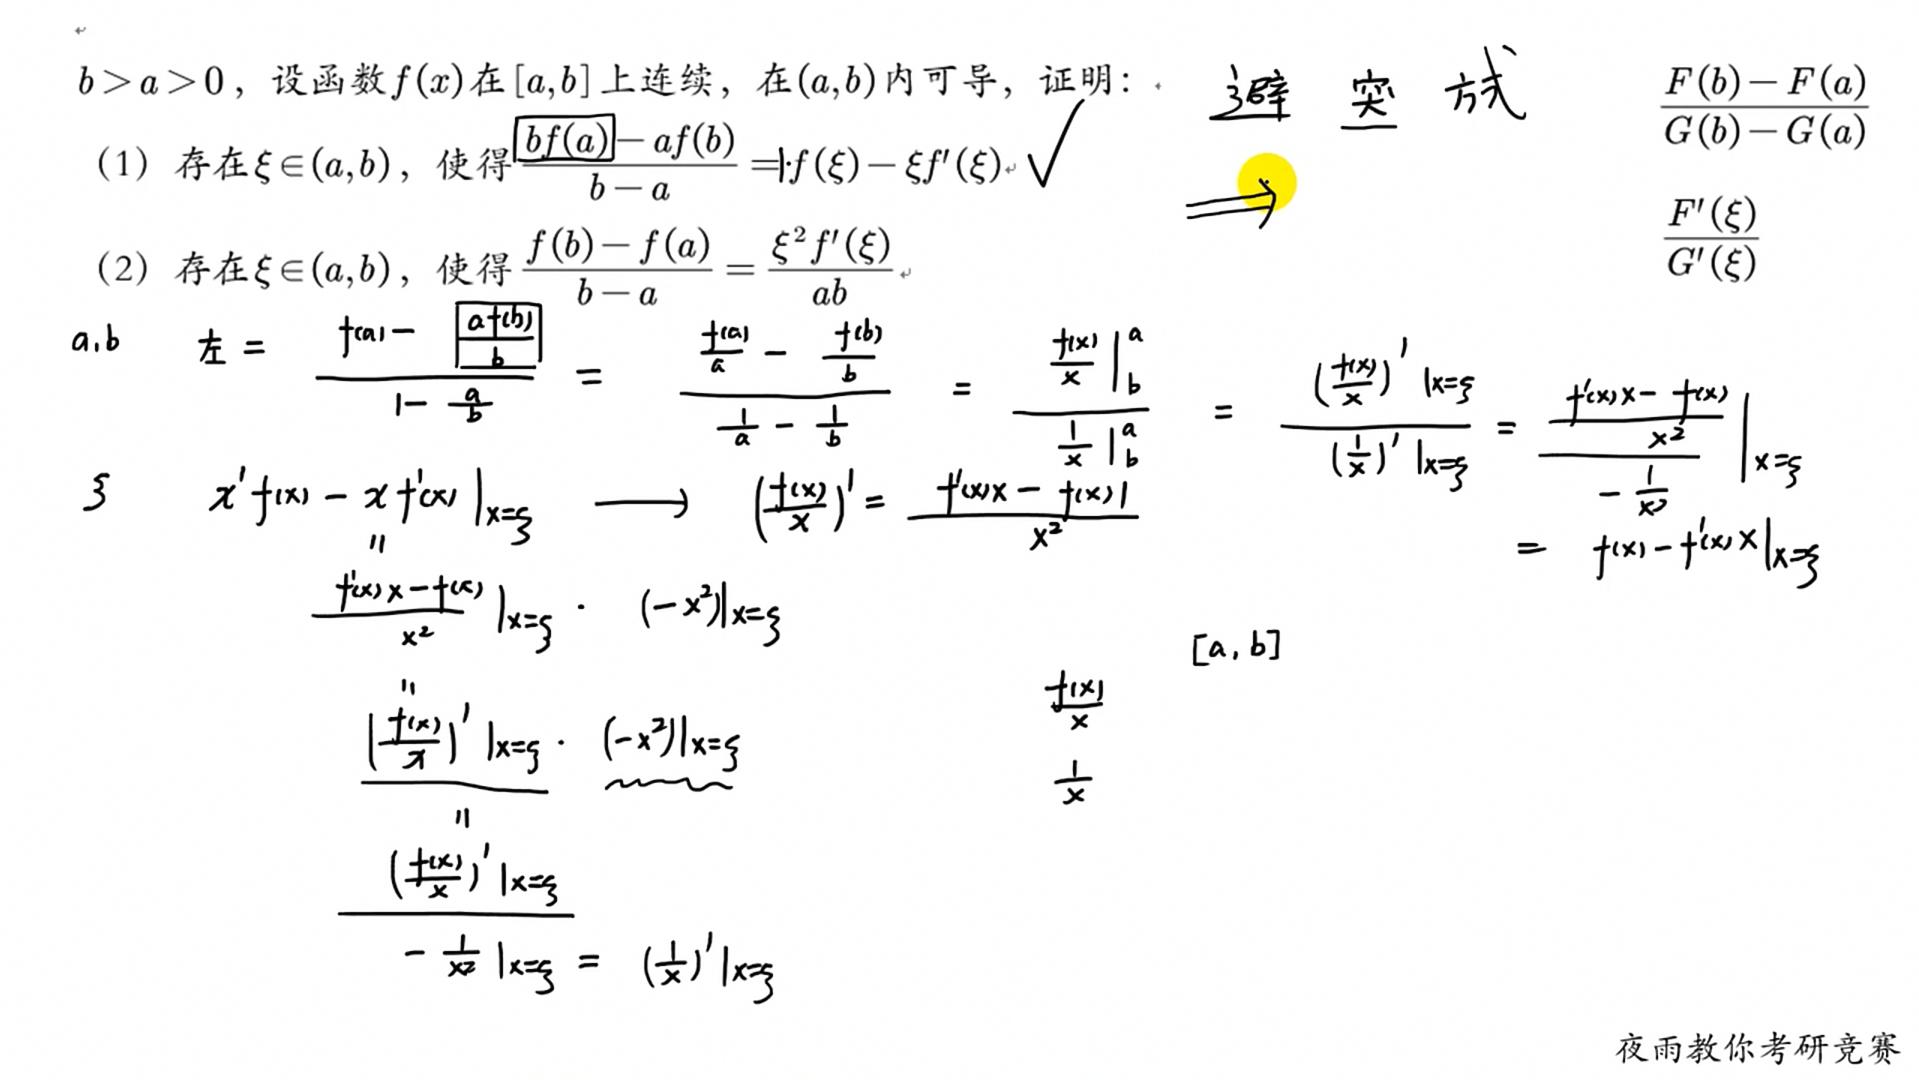 b>a>0，设函数f(x)在[a,b]上连续，在(a,b)内可导，证明：
（1）存在ξ∈(a,b)，使得 \frac{bf(a)-af(b)}{b-a}=1·f(ξ)-ξf'(ξ) ✓
（2）存在ξ∈(a,b)，使得 \frac{f(b)-f(a)}{b-a}=\frac{ξ^2f'(ξ)}{ab}
避 突 方式
⟹
\frac{F(b)-F(a)}{G(b)-G(a)}
\frac{F'(ξ)}{G'(ξ)}
a.b 左 = \frac{f(a)-\frac{af(b)}{b}}{1-\frac{a}{b}} = \frac{\frac{f(a)}{a}-\frac{f(b)}{b}}{\frac{1}{a}-\frac{1}{b}} = \frac{\frac{f(x)}{x}|_b^a}{\frac{1}{x}|_b^a} = \frac{(\frac{f(x)}{x})'|_{x=ξ}}{(\frac{1}{x})'|_{x=ξ}} = \frac{\frac{f'(x)x-f(x)}{x^2}}{-\frac{1}{x^2}}|_{x=ξ}
= f(x)-f'(x)x|_{x=ξ}
ξ x'f(x)-xf'(x)|_{x=ξ} ⟶ (\frac{f(x)}{x})'=\frac{f'(x)x-f(x)1}{x^2}
=
\frac{f'(x)x-f(x)}{x^2}|_{x=ξ} · (-x^2)|_{x=ξ}
=
(\frac{f(x)}{x})'|_{x=ξ} · (-x^2)|_{x=ξ}
=
\frac{(\frac{f(x)}{x})'|_{x=ξ}}{-\frac{1}{x^2}|_{x=ξ}} = (\frac{1}{x})'|_{x=ξ}
[a,b]
\frac{f(x)}{x}
\frac{1}{x}
夜雨教你考研竞赛